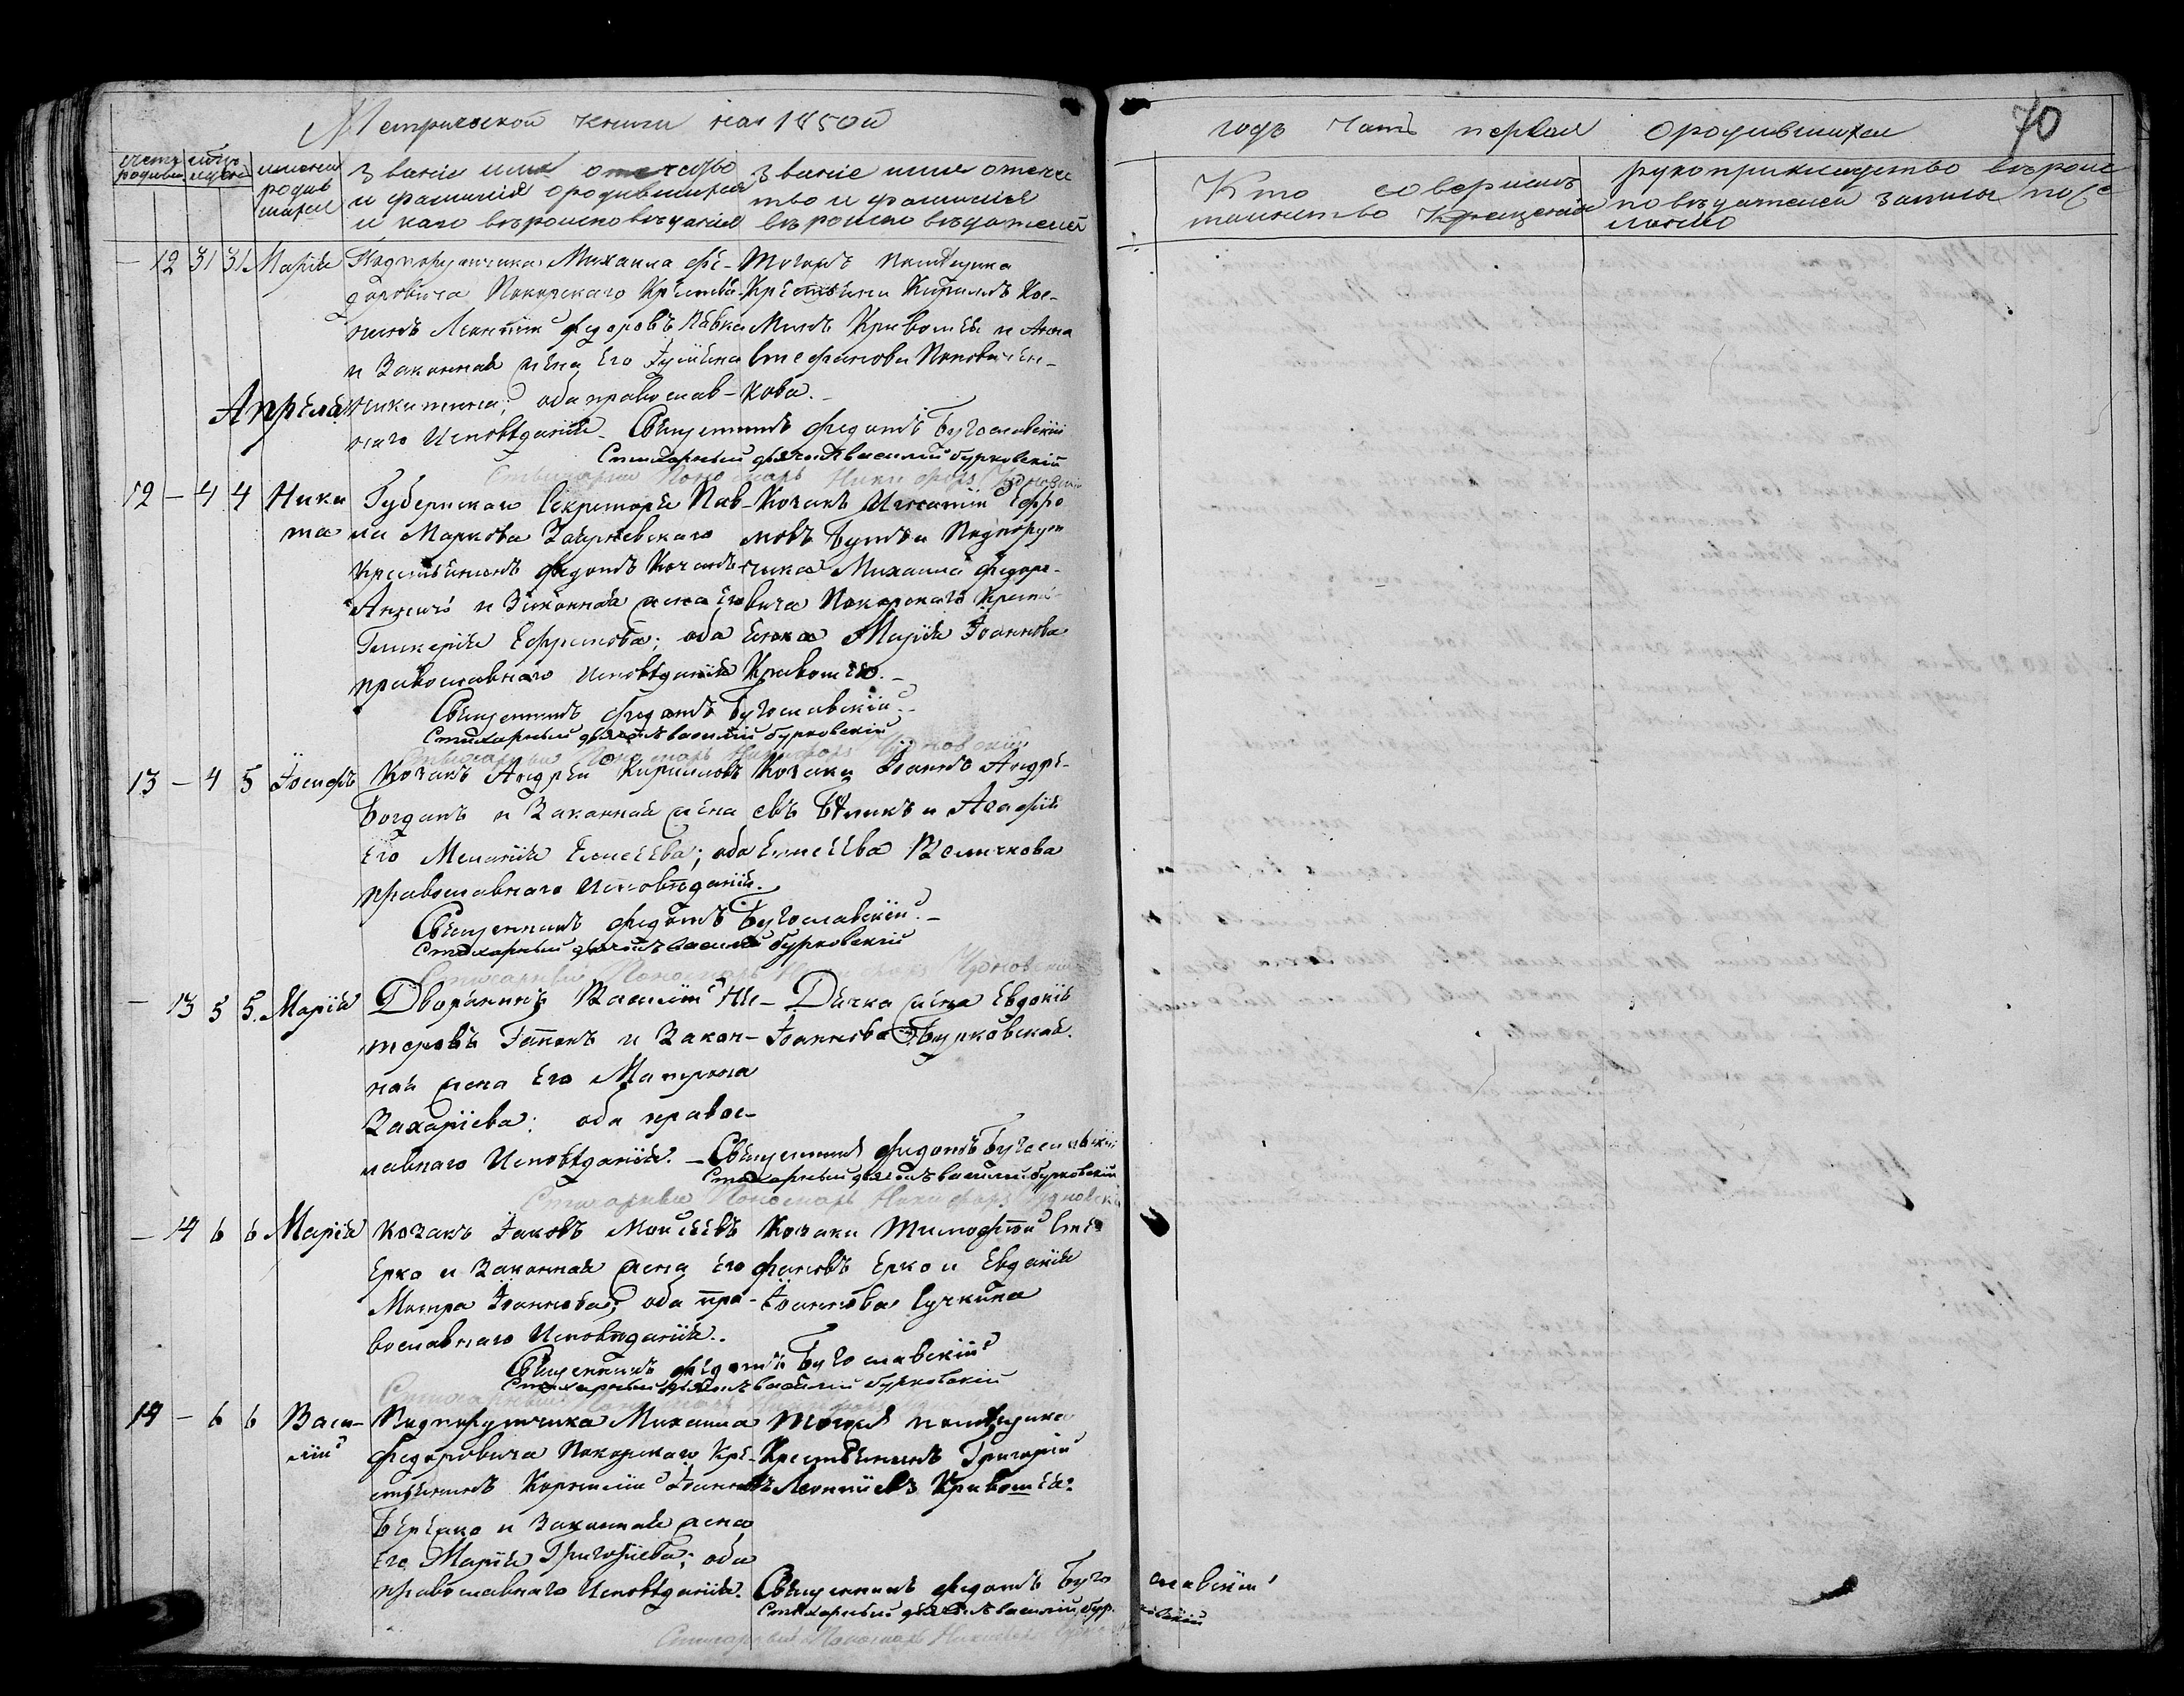 Метрической книги на 1850й
годъ Часть первая О родившихся
70
счетъ родивш
мѣсяцъ
имена родив шихся
Званіе имя отечество и фамилія о родившихся и каго вѣроисповѣданія
Званіе имя отече тво и фамилія
Кто совершалъ таинство Крещенія
рукоприкладство записи
— 12 31 31 Марія
Подпоручика Михаила Фе-
доровича Покорскаго Крестья-
нинъ Леонтій Федоровъ
и Законная жена Его
Никитина; оба православ-
наго Исповѣданія
Тогожъ помѣщика
Крестьяни Кирилъ Кос-
минъ Кривошея и Анна
Стефанова
кова.
Священникъ Федотъ Богославскій
Стихарный дьячокъ василій бурковскій
Стихарный Пономарь Никифоръ Чудновскій
Апрѣля
12 — 4 4 Ники
та
Губернскаго Секретаря Пав-
ла Маркова
Крестьянинъ Федотъ
и Законная жена Его
Гликерія Ефремова; оба
православнаго Исповѣданія
Козакъ Игнатій Ефре
мовъ и Подпору
чика Михаила Федоро-
вича Покорскаго Кресть
янка Марія Іоаннова
Кривошея.
Священникъ Федотъ Богославскій.
Стихарный дьячокъ василій бурковскій
Стихарный Пономарь Никифоръ Чудновскій
13 — 4 5 Іосифъ
Козакъ Андрей Кирилловъ
Богданъ и Законная жена
Его Меланія Елисеева; оба
православнаго Исповѣданія.
Козаки Іоаннъ Андре-
евъ Бѣликъ и Агафія
Елисеева Величкова
Священникъ Федотъ Богославскій. —
Стихарный дьячокъ василій бурковскій
Стихарный Пономарь Никифоръ Чудновскій
— 13 5 5. Марія
Дворянинъ Василій Не-
стеровъ Гапонъ и Закон-
ная жена Его Матрона
Захаріева; оба правос-
лавнаго Исповѣданія.
Дьячка жена Евдокія
Іоаннова Бурковская.
Священникъ Федотъ Богославскій
Стихарный дьячокъ василій бурковскій
Стихарный Пономарь Никифоръ Чудновскій
— 14 6 6 Марія
Козакъ Іаковъ Моисеевъ
Ерко и Законная жена Его
Мотра Іоаннова; оба пра-
вославнаго Исповѣданія.
Козаки Тимофѣй Сте
фановъ Ерко и Евдокія
Іоаннова
Священникъ Федотъ Богославскій
Стихарный дьячокъ василій бурковскій
14 — 6 6 Васи-
лій
Подпоручика Михаила
Федоровича Покорскаго Кре-
стьянинъ Корнилій Іоанновъ
и Законная жена
Его Марія Григоріева; оба
православнаго Исповѣданія.
Тогожъ помѣщика
Крестьянинъ Григорій
Леонтіевъ Кривошея.
Священникъ Федотъ Богославскій
Стихарный дьячокъ василій бурковскій
Стихарный Пономарь Никифоръ